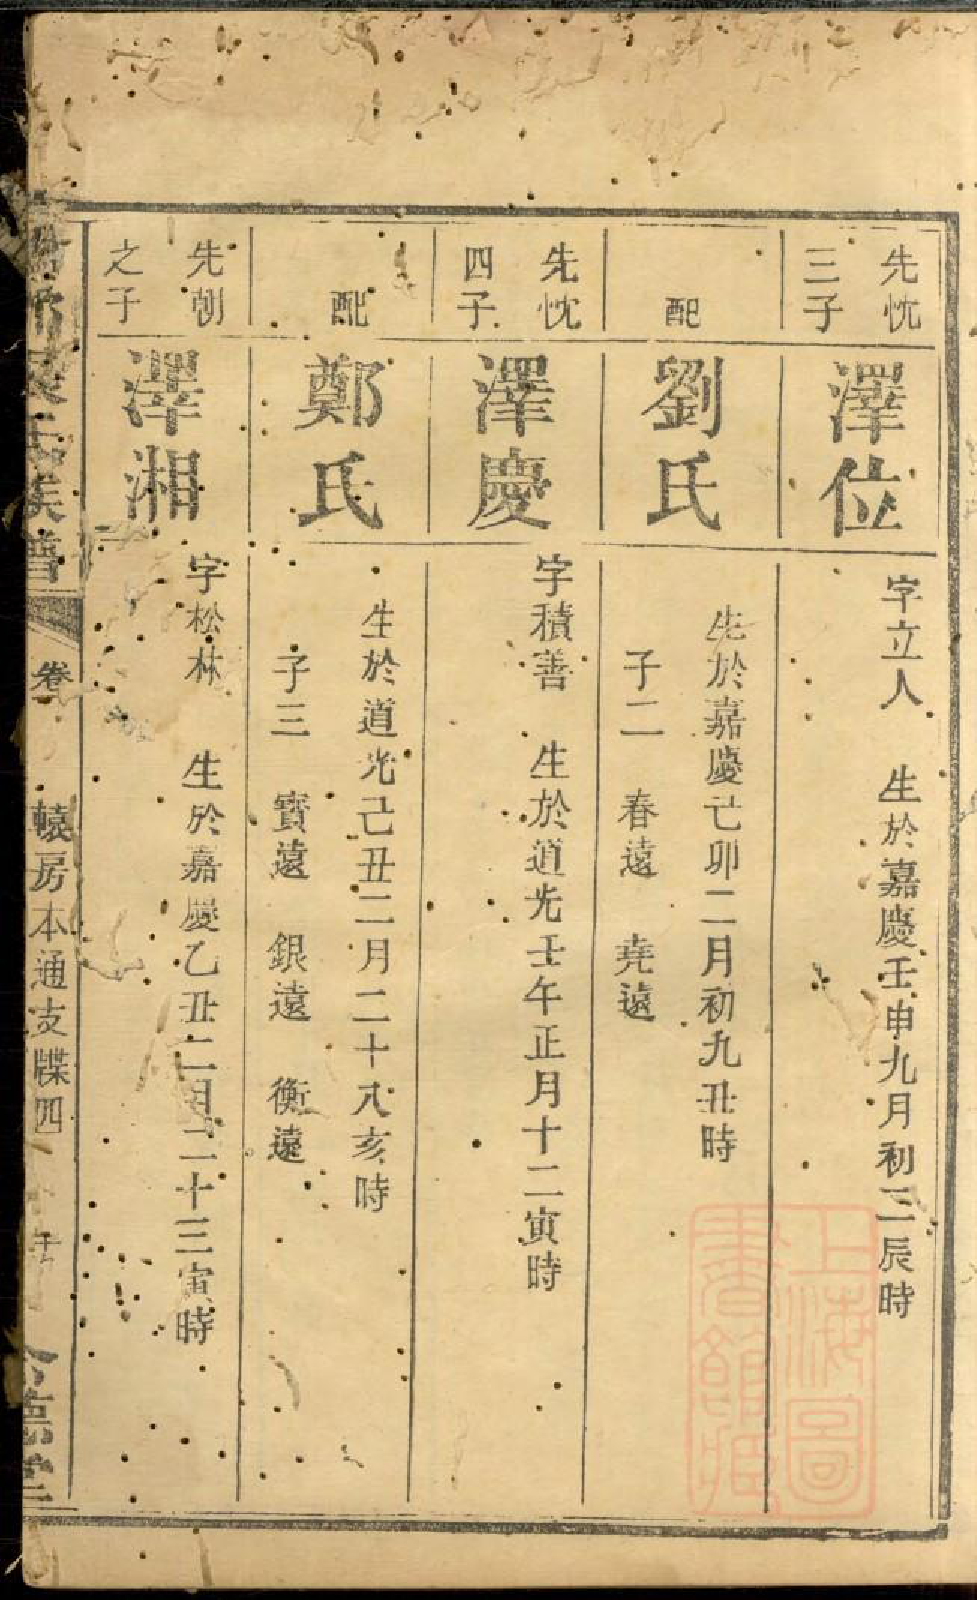 先忱
三子
澤位
字立人 生於嘉慶壬申九月初三辰時
配
劉氏
生於嘉慶己卯二月初九丑時
子二 春遠 堯遠
先忱
四子
澤慶
字積善 生於道光壬午正月十二寅時
配
鄭氏
生於道光己丑二月二十八亥時
子三 寶遠 銀遠 衡遠
先朝
之子
澤湘
字松林 生於嘉慶乙丑二月二十三寅時
氏族譜
卷
轅房本通支牒四
德堂
上海圖書館藏